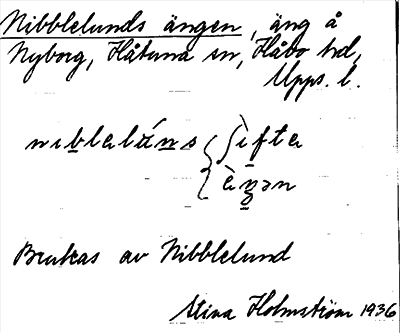 Nibblelunds ängen, äng å
Nyborg, Håtuna sn, Håbo hd,
Upps. l.
nıblelún s ʃìftɐ
èŋən
Brukas av Nibblelund
Stina Holmström 1936